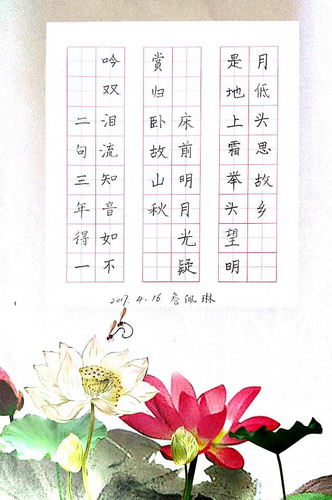 二句三年得一
吟双泪流知音如不
赏归卧故山秋
床前明月光疑
是地上霜举头望明
月低头思故乡
2017.4.16 詹佩琳